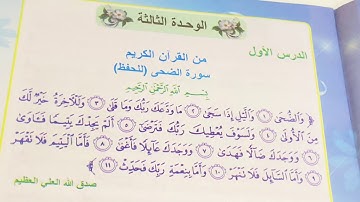 الوحدة الثالثة
الدرس الأول
من القرآن الكريم
سورة الضحى (للحفظ)
بِسْمِ اللَّهِ الرَّحْمَنِ الرَّحِيمِ
﴿ وَالضُّحَى ١ وَاللَّيْلِ إِذَا سَجَى ٢ مَا وَدَّعَكَ رَبُّكَ وَمَا قَلَى ٣ وَلَلْآخِرَةُ خَيْرٌ لَّكَ
مِنَ الْأُولَى ٤ وَلَسَوْفَ يُعْطِيكَ رَبُّكَ فَتَرْضَى ٥ أَلَمْ يَجِدْكَ يَتِيمًا فَآوَى
٦ وَوَجَدَكَ ضَالًّا فَهَدَى ٧ وَوَجَدَكَ عَائِلًا فَأَغْنَى ٨ فَأَمَّا الْيَتِيمَ فَلَا تَقْهَرْ
٩ وَأَمَّا السَّائِلَ فَلَا تَنْهَرْ ١٠ وَأَمَّا بِنِعْمَةِ رَبِّكَ فَحَدِّثْ ١١ ﴾
صدق الله العلي العظيم